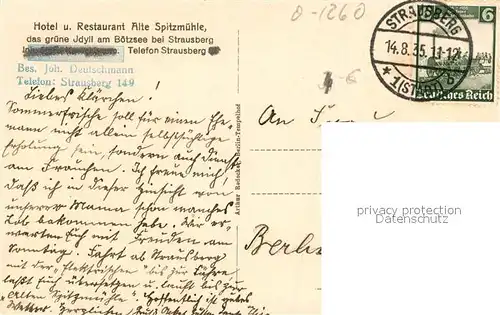 Hotel u. Restaurant Alte Spitzmühle,
das grüne Idyll am Bötzsee bei Strausberg
Telefon Strausberg
Bes. Joh. Deutschmann
Telefon: Strausberg 149
0-1260
STRAUSBERG
14.8.35.11-12
*1(STR
6
Deutsches Reich
€
Liebes Klärchen!
Sommerfrische soll für einen Ehe-
mann nicht allein selbstsüchtige
Erholung sein, sondern auch Dienst
am Frauchen. Ich freue mich,
daß ich in dieser Hinsicht von
unserer Mama schon manches
Lob bekommen habe. Wir er-
warten Euch mit Freuden am
Sonntag. Fahrt ab Strausberg
mit der "Elektrischen" bis zur Fähre,
laßt Euch übersetzen u. lauft bis zur
"Alten Spitzmühle". Hoffentlich ist gutes
Wetter. Herzlichen Gruß
An Frau
Berli
privacy protection
Datenschutz